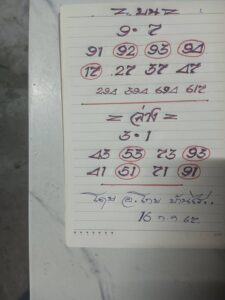 = บน =
9 · 7
91 92 93 94
17 27 37 47
294 394 694 617
= ล่าง =
3 · 1
43 53 73 93
41 51 71 91
โดย อ.โทย บ้านไร่..
16 ก.ค 65